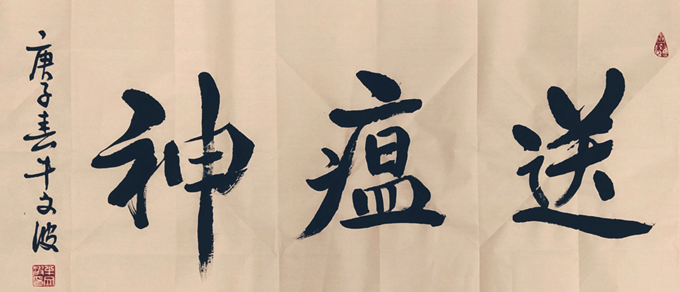 送瘟神
庚子春牛文波